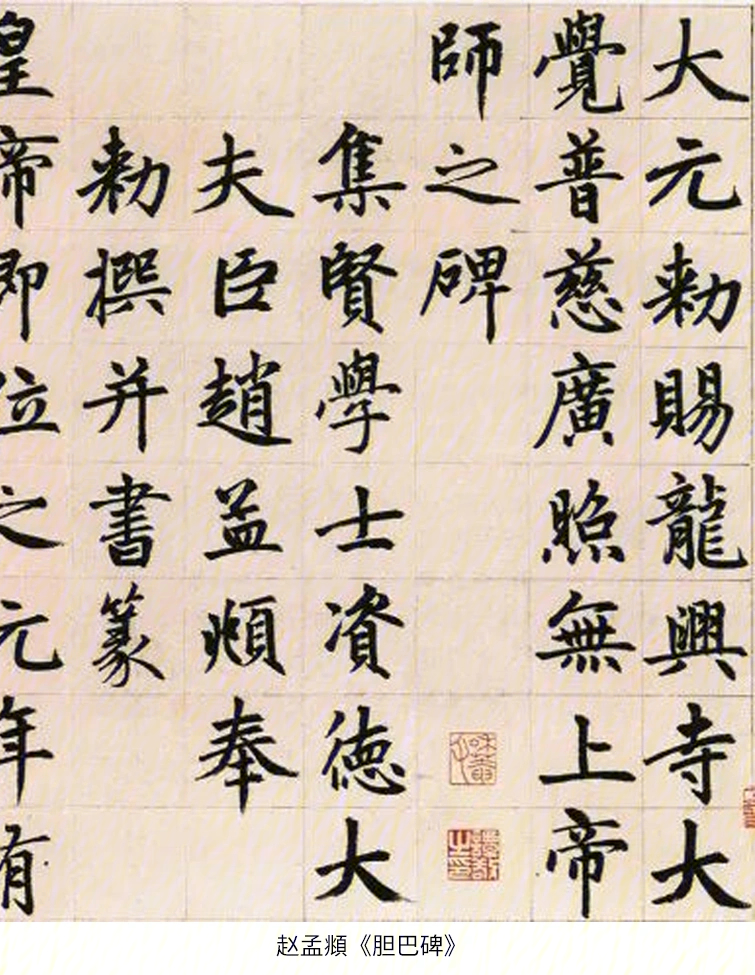 大元勅賜龍興寺大
覺普慈廣照無上帝
師之碑
集賢學士資德大
夫臣趙孟頫奉
勅撰并書篆
皇帝即位之元年有
赵孟頫《胆巴碑》